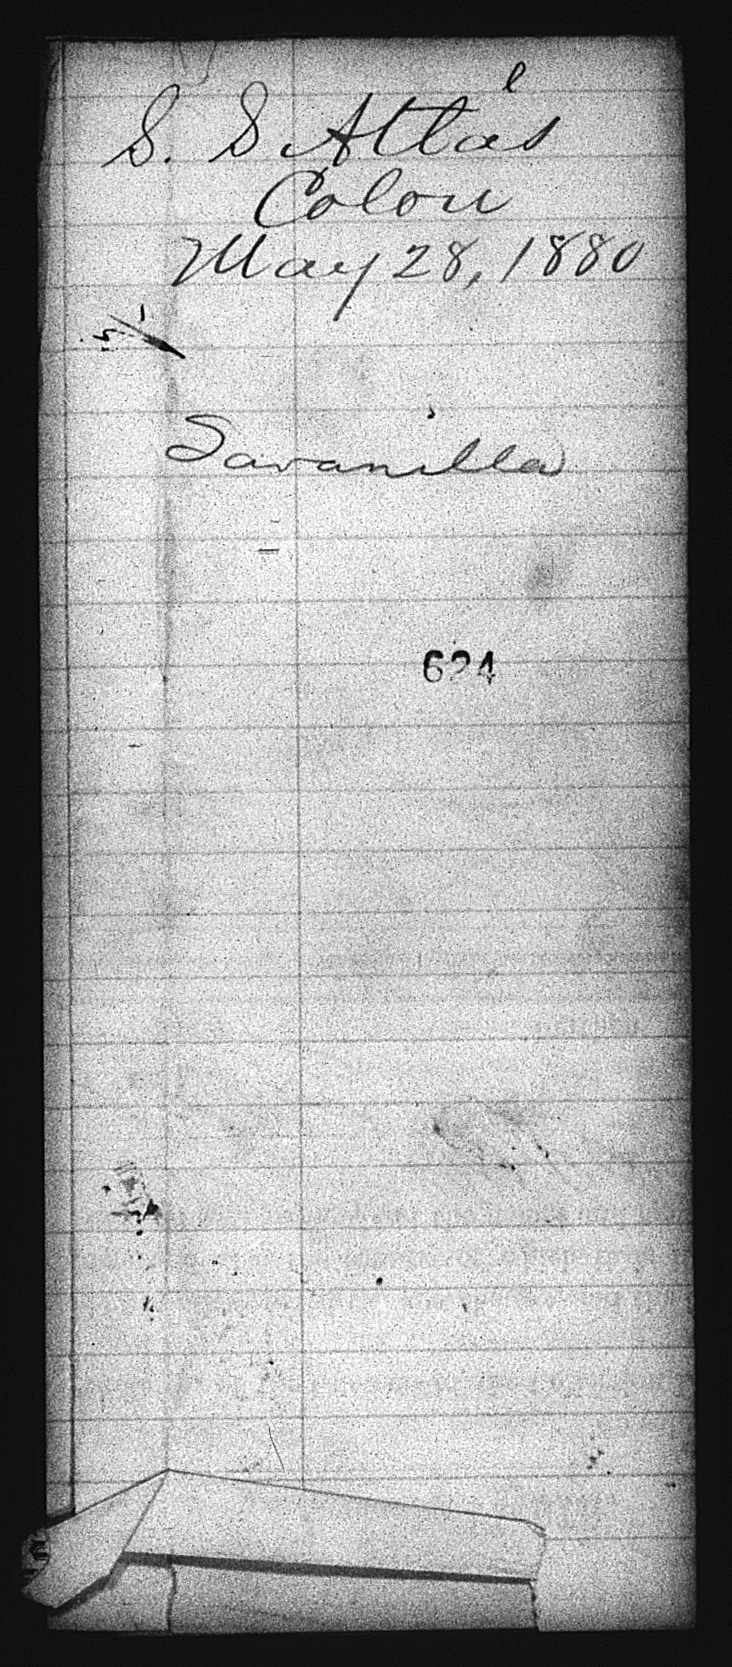 S. S Attas
Colon
May 28, 1880
Savanilla
624